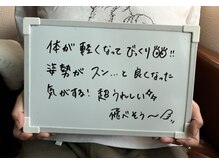 体が軽くなってびっくり!!
姿勢がスン…と良くなった
気がする!超うれしい
飛べそう〜